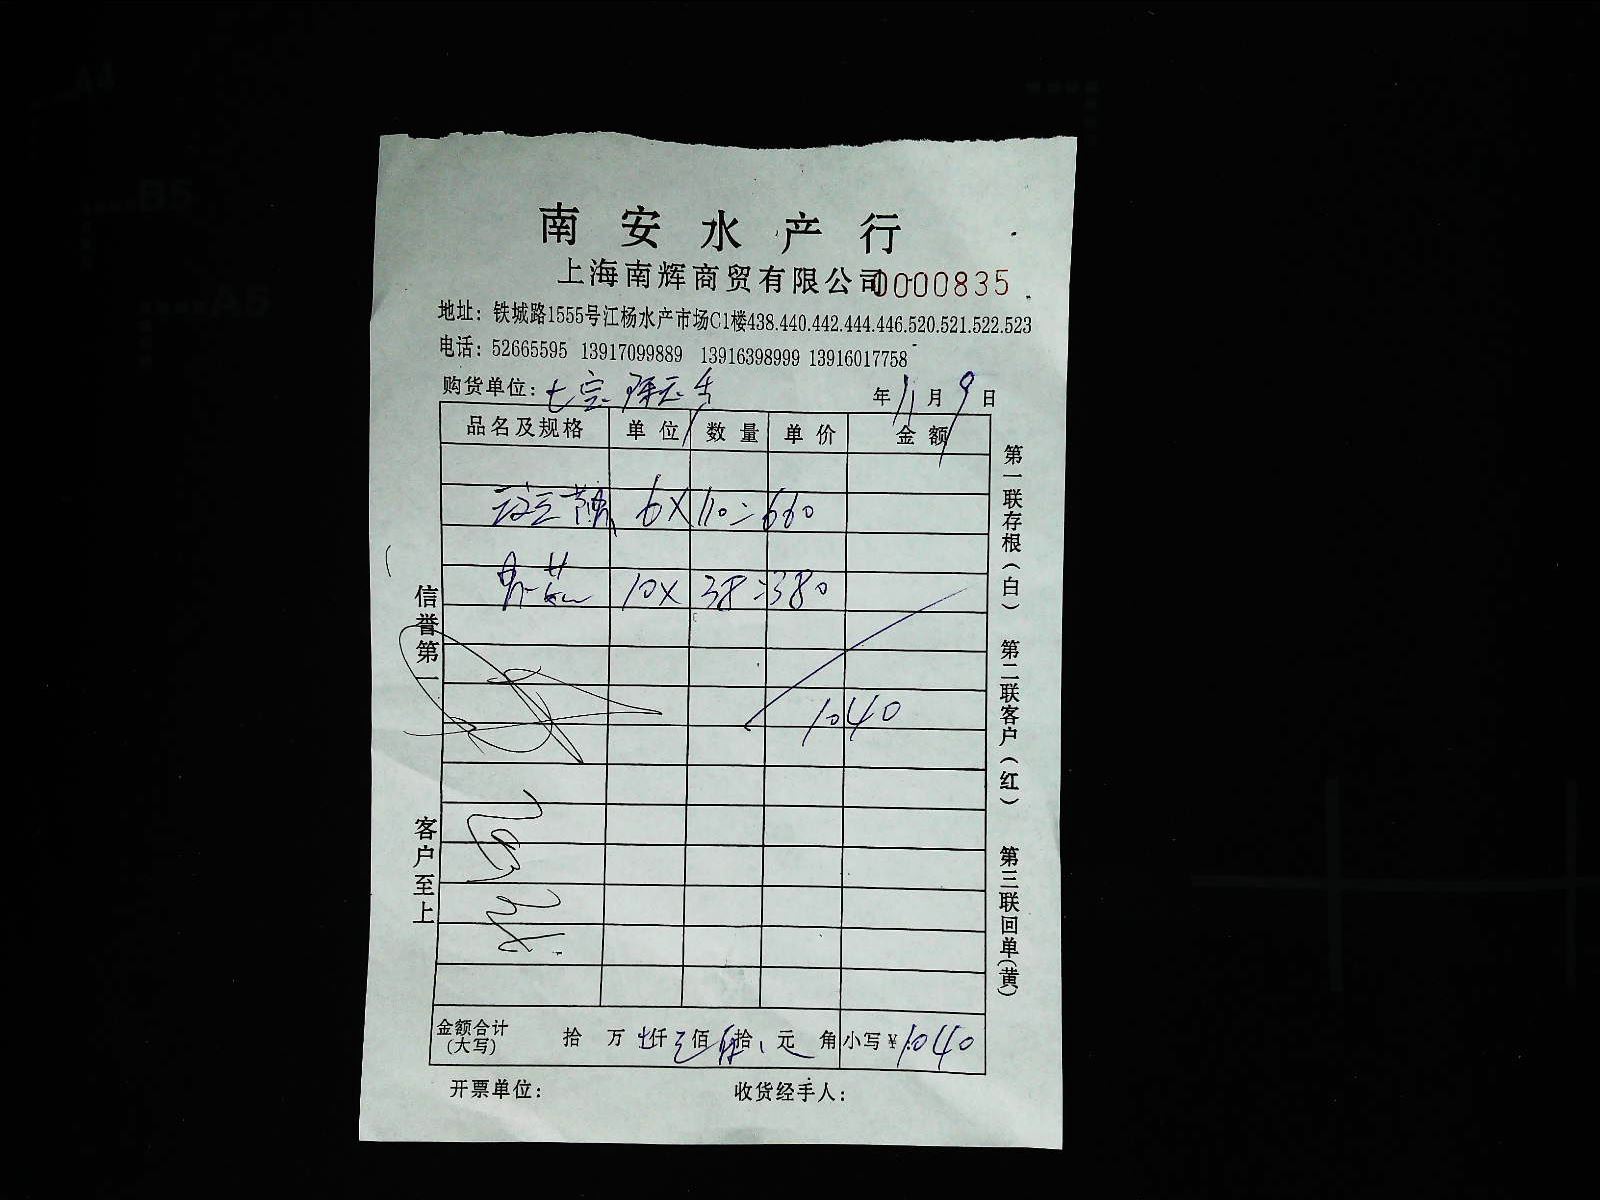 南安水产行
上海南辉商贸有限公司 0000835
地址：铁城路1555号江杨水产市场C1楼438.440.442.444.446.520.521.522.523
电话：52665595 13917099889 13916398999 13916017758
购货单位： 年 11 月 9 日
品名及规格 单位 数量 单价 金额
6 X 110 = 660
10 X 38 = 380
1040
金额合计（大写） 拾 万 仟 佰 拾 元 角 小写￥1040
开票单位： 收货经手人：
信誉第一
客户至上
第一联存根（白）
第二联客户（红）
第三联回单（黄）